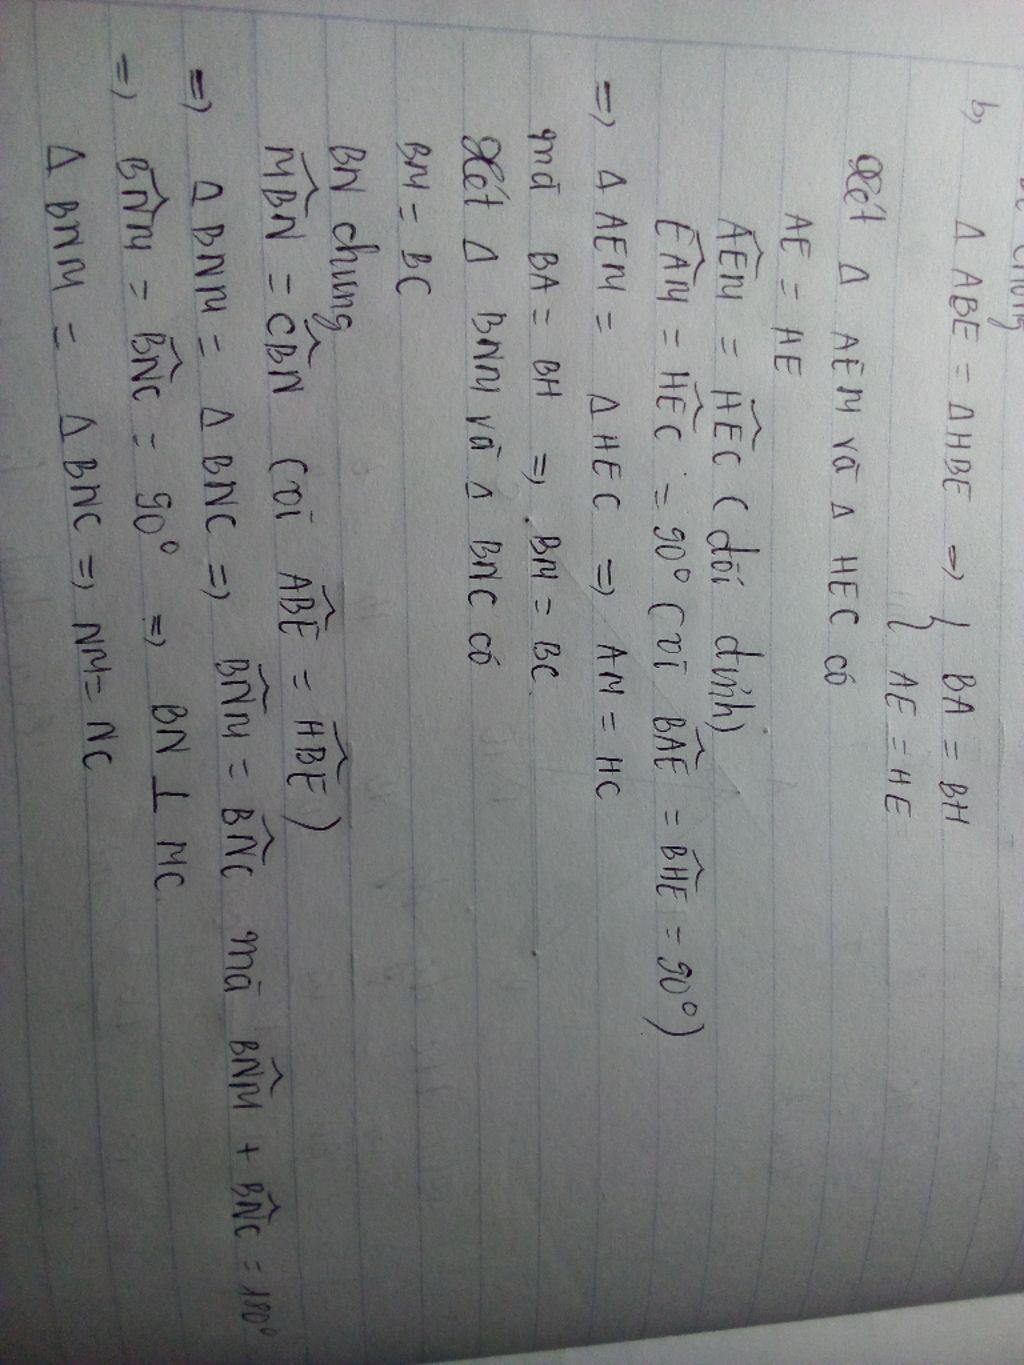 b, Δ ABE = ΔHBE => { BA = BH
{ AE = HE
Xét Δ AEM và Δ HEC có
AE = HE
AÊM = HÊC (đối đỉnh)
EÂM = HÊC = 90° (vì BÂE = BĤE = 90°)
=> Δ AEM = Δ HEC => AM = HC
mà BA = BH => BM = BC
Xét Δ BNM và Δ BNC có
BM = BC
BN chung
MB̂N = CB̂N (vì AB̂E = HB̂E)
=> Δ BNM = Δ BNC => BN̂M = BN̂C mà BN̂M + BN̂C = 180°
=> BN̂M = BN̂C = 90° => BN ⊥ MC
Δ BNM = Δ BNC => NM = NC